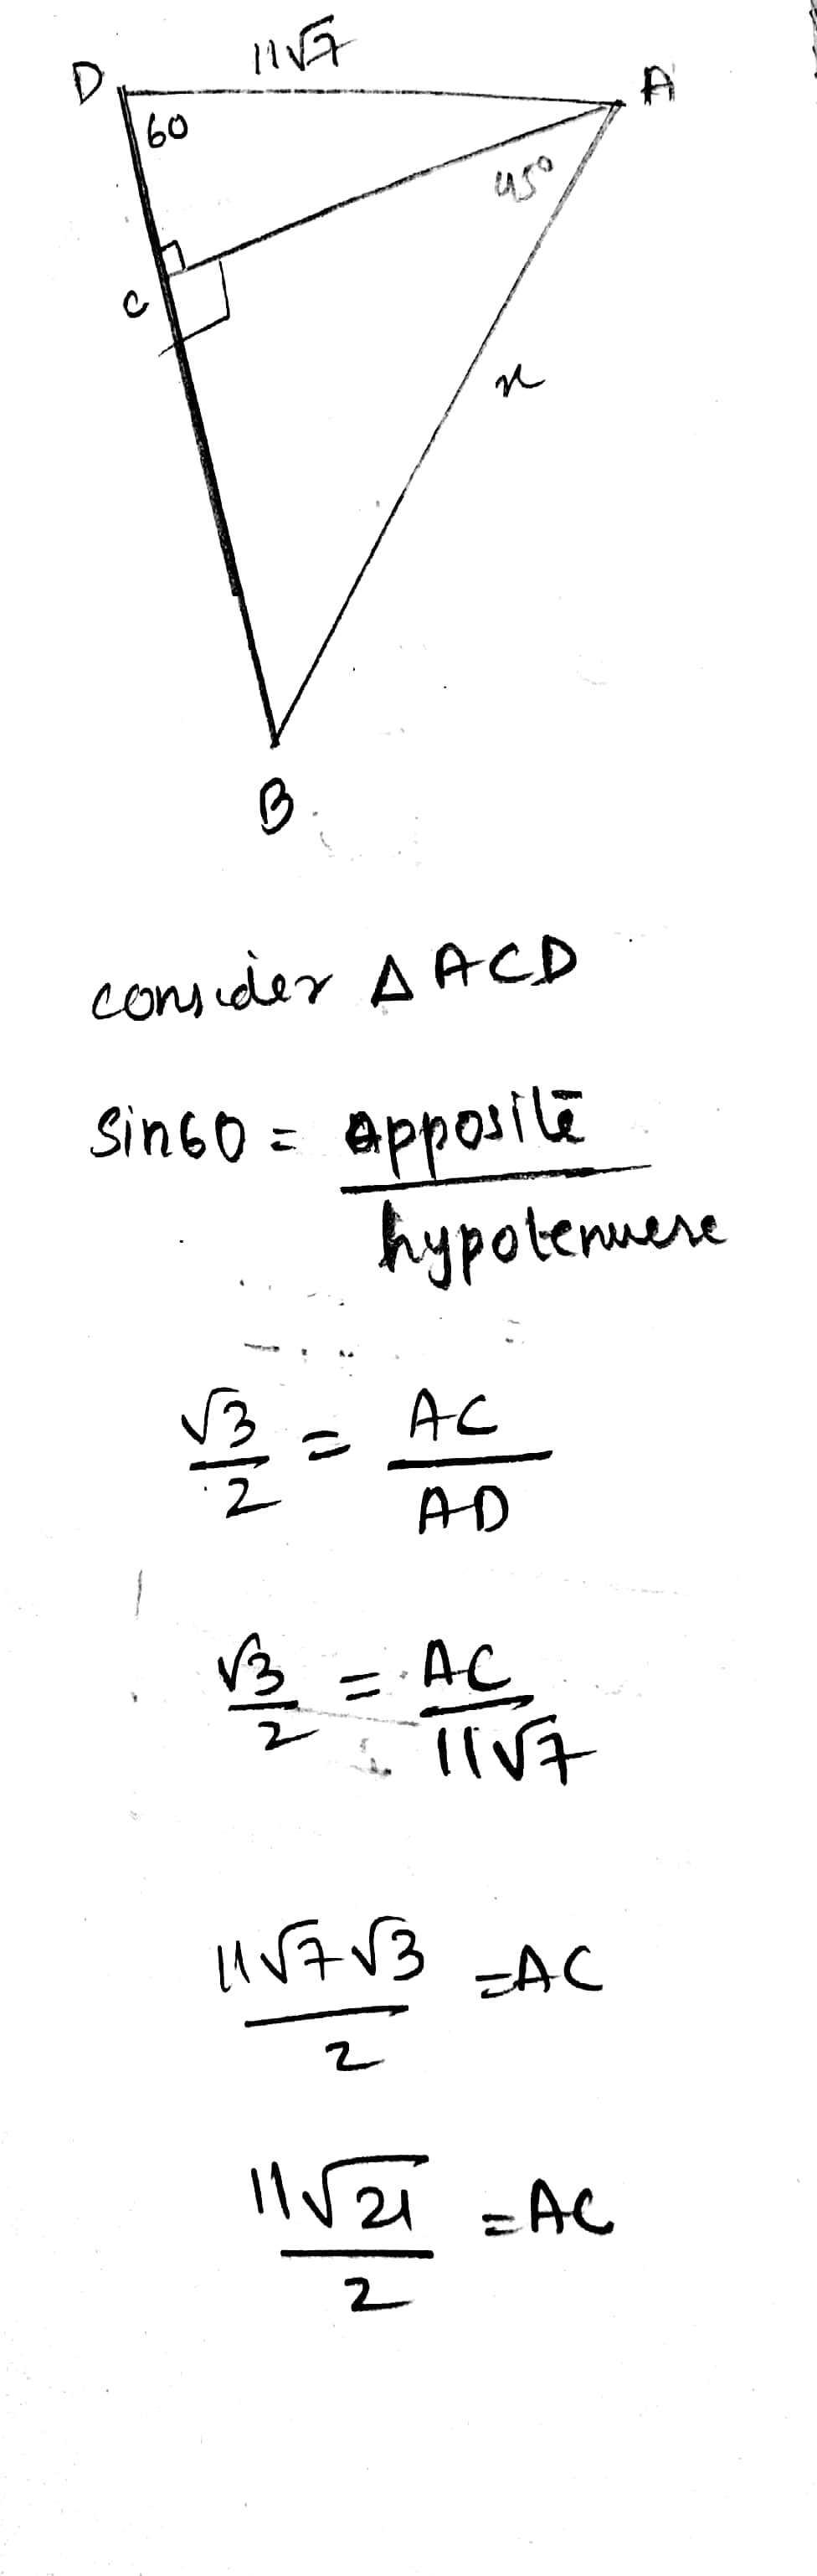 11√7
D A
60
45°
C
x
B
consider Δ ACD
Sin60 = opposite
hypotenuese
√3 = AC
2 AD
√3 = AC
2 11√7
11√7√3 = AC
2
11√21 = AC
2